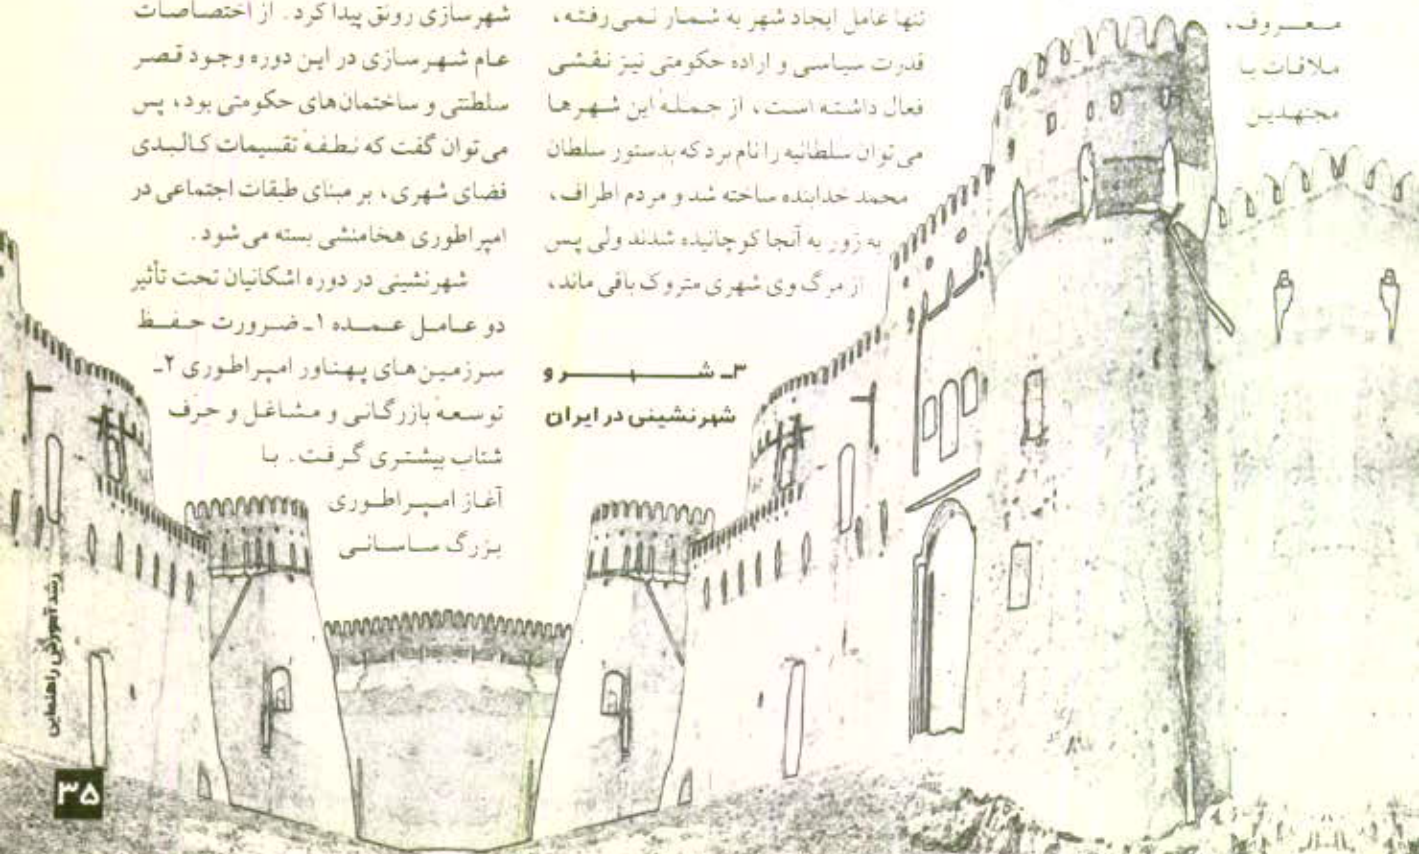 معروف،
ملاقات با
مجتهدین
تنها عامل ایجاد شهر به شمار نمی‌رفته،
قدرت سیاسی و اراده حکومتی نیز نقشی
فعال داشته است، از جمله این شهرها
می‌توان سلطانیه را نام برد که بدستور سلطان
محمد خدابنده ساخته شد و مردم اطراف،
به زور به آنجا کوچانیده شدند ولی پس
از مرگ وی شهری متروک باقی ماند،
۳ـ شهر و
شهرنشینی در ایران
شهرسازی رونق پیدا کرد. از اختصاصات
عام شهرسازی در این دوره وجود قصر
سلطنتی و ساختمان‌های حکومتی بود، پس
می‌توان گفت که نطفهٔ تقسیمات کالبدی
فضای شهری، بر مبنای طبقات اجتماعی در
امپراطوری هخامنشی بسته می‌شود.
شهرنشینی در دوره اشکانیان تحت تأثیر
دو عامل عمده ۱ـ ضرورت حفظ
سرزمین‌های پهناور امپراطوری ۲ـ
توسعهٔ بازرگانی و مشاغل و حرف
شتاب بیشتری گرفت. با
آغاز امپراطوری
بزرگ ساسانی
رشد آموزش راهنمایی
۳۵